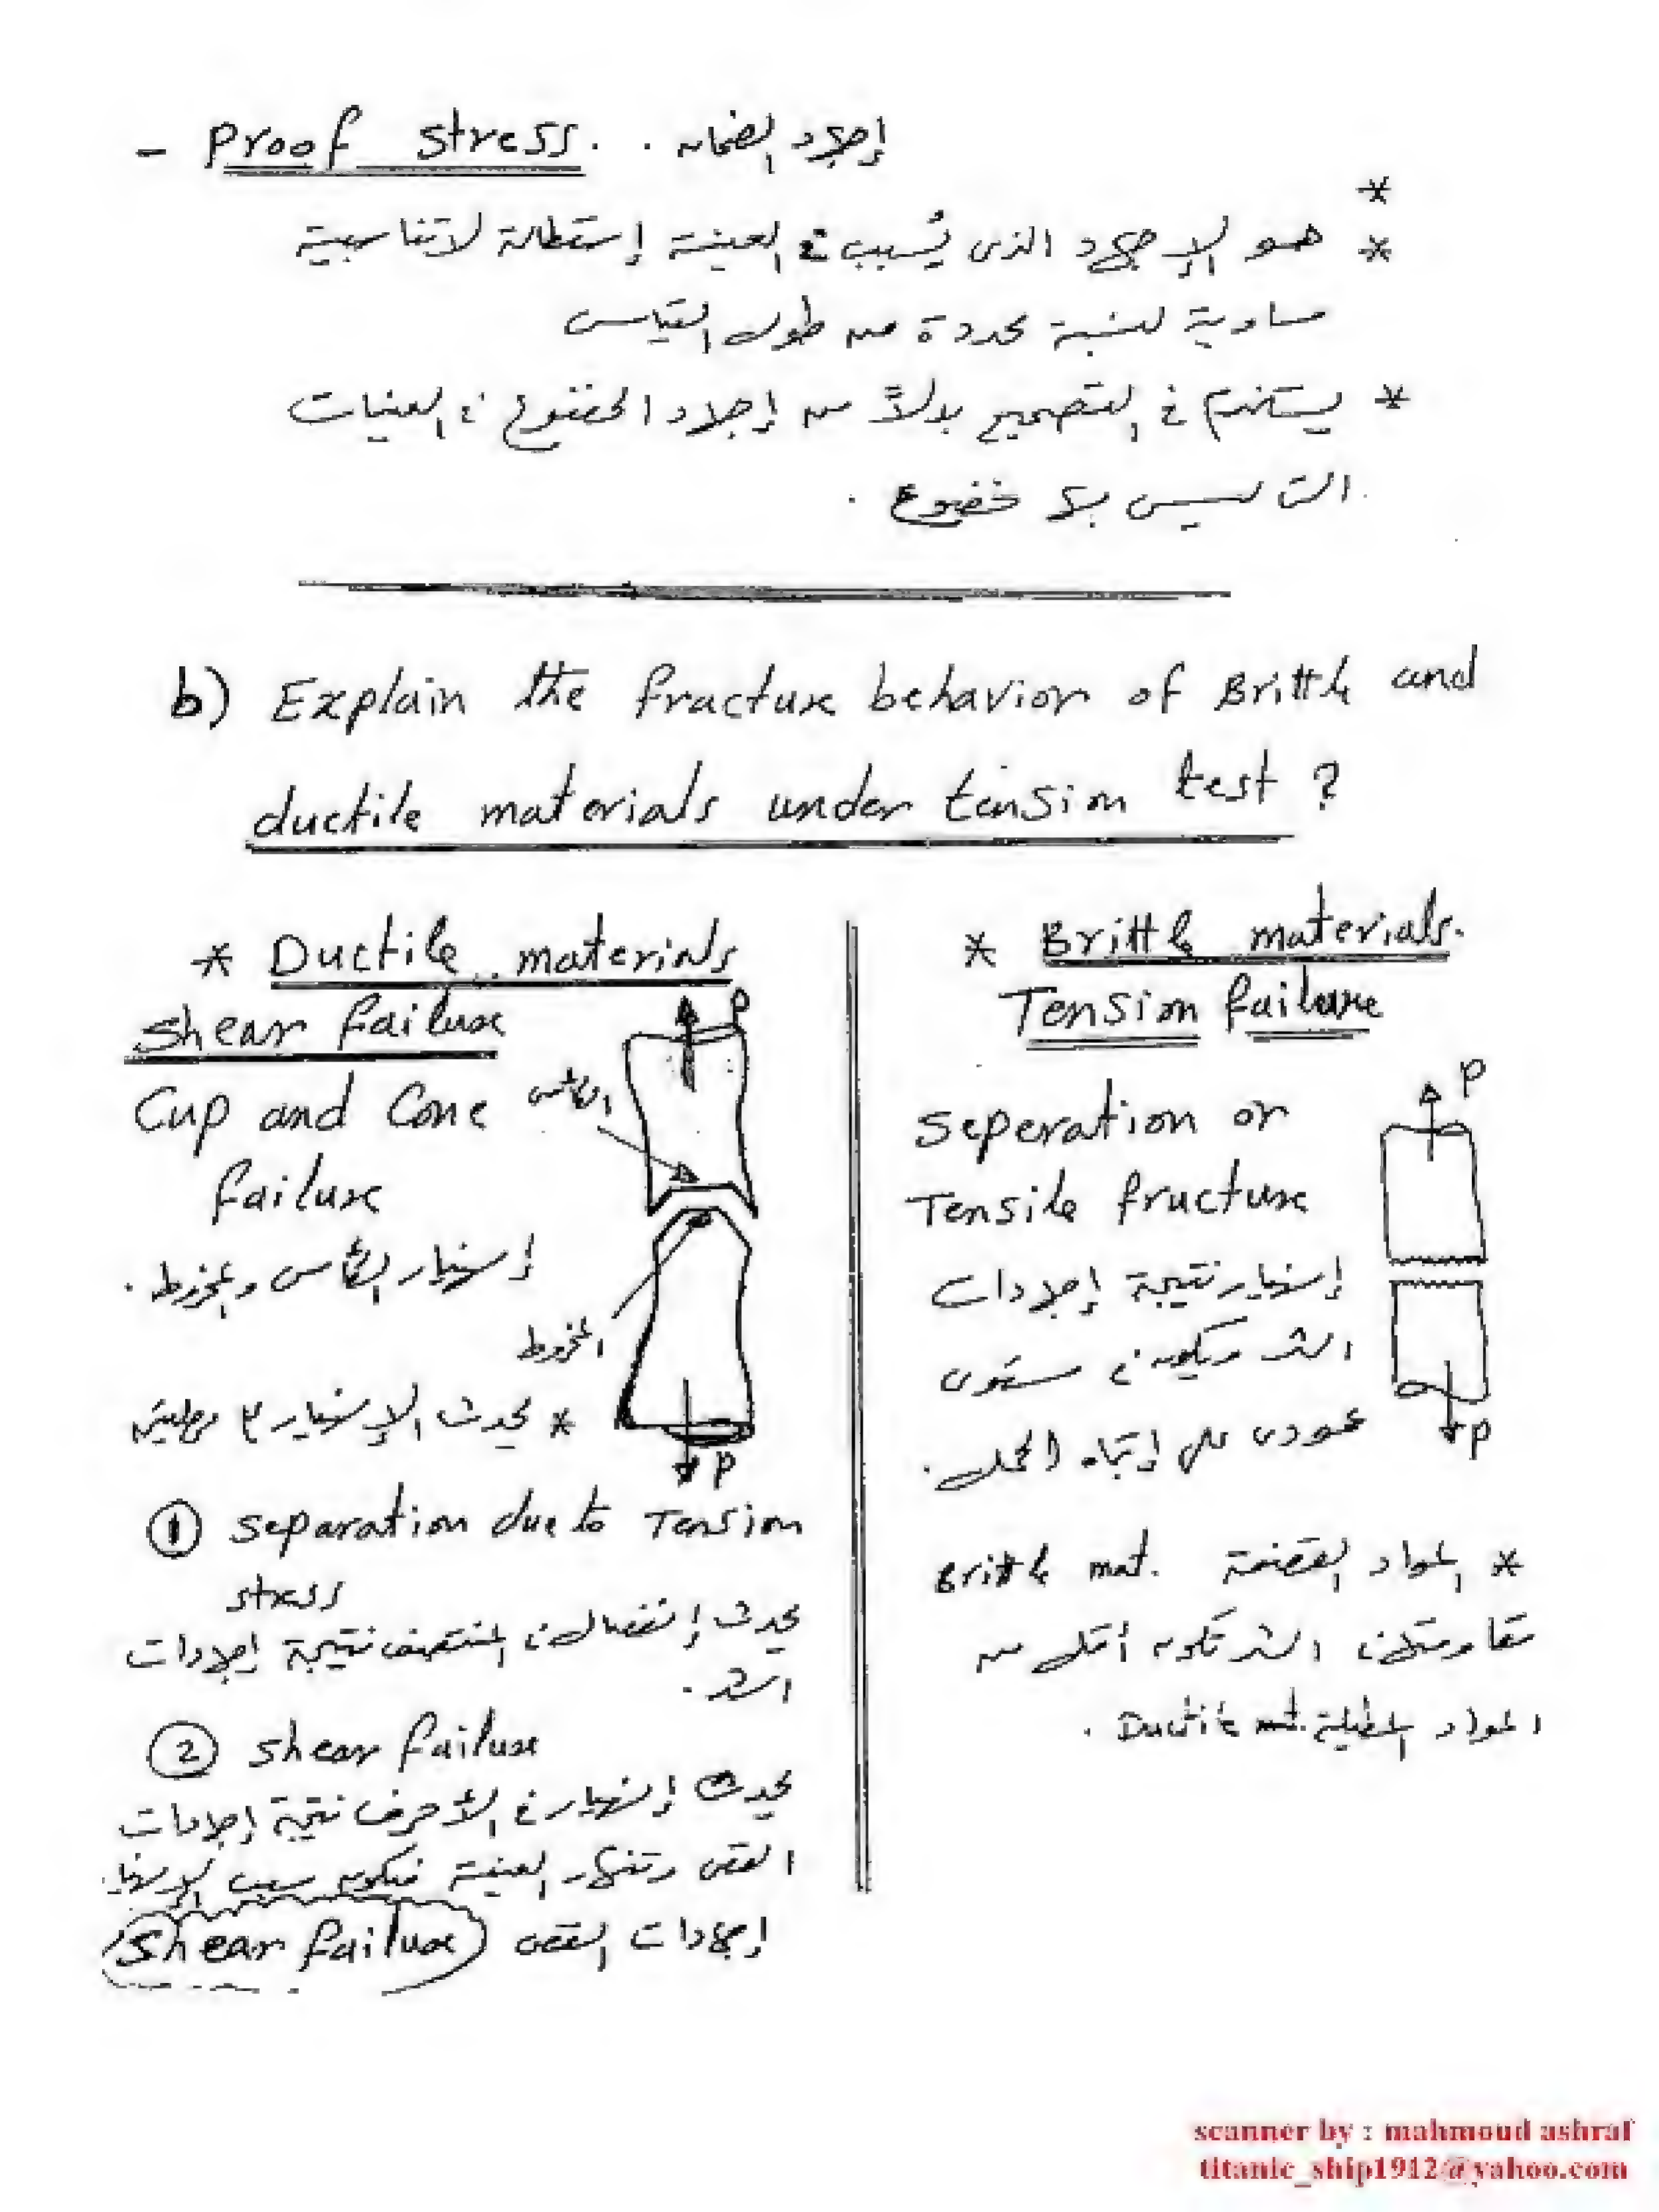 - Proof stress. . إجهاد الضمان
*
* هو الإجهاد الذى يُسبب فى العينة إستطالة لا تناسبية
مساوية لنسبة محددة من طول القياس
* يستخدم فى التصميم بدلاً من إجهاد الخضوع فى العينات
التى ليس بها خضوع .
b) Explain the fracture behavior of Brittle and
ductile materials under tension test ?
* Ductile materials
shear failure
P
Cup and Cone
الكأس
failure
إنهيار الكأس والمخروط .
المخروط
* يحدث الإنهيار على مرحلتين
P
① separation due to Tension
stress
يحدث إنفصال فى المنتصف نتيجة إجهادات
الشد .
② shear failure
يحدث إنهيار فى الأحرف نتيجة إجهادات
القص وتنهار العينة فيكون سبب الإنهيار
إجهادات القص (shear failure)
* Brittle materials.
Tension failure
P
seperation or
Tensile fructure
إنهيار نتيجة إجهادات
الشد ويكون فى مستوى
عمودى على إتجاه الحمل .
P
* المواد القصفة Brittle mat.
مقاومتها فى الشد تكون أقل من
المواد المطيلة Ductile mat. .
scanner by : mahmoud ashraf
titanic_ship1912@yahoo.com